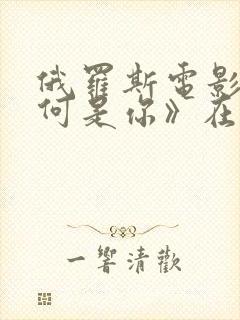 俄羅斯電影
何是你》在
一響清歡